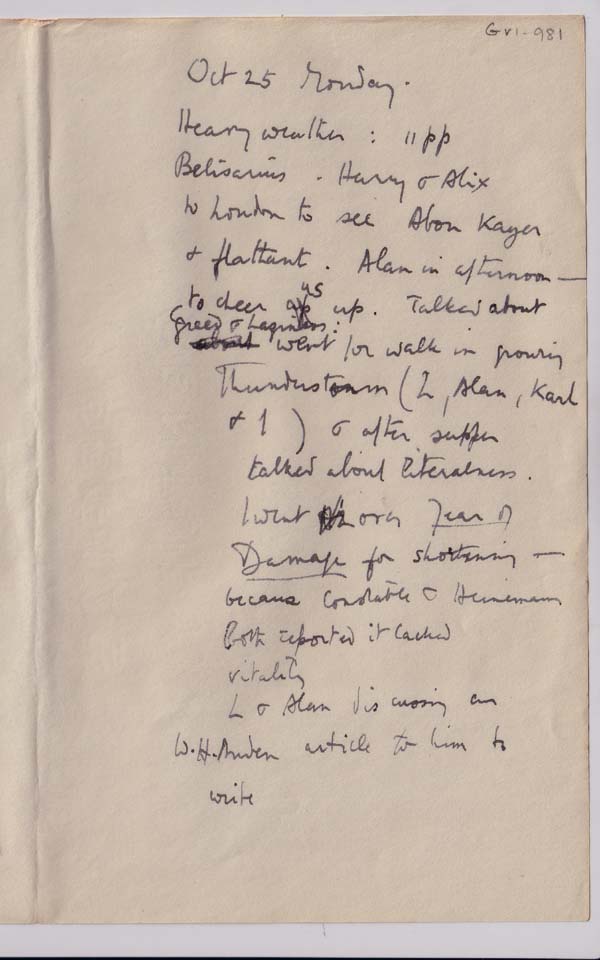 GVI-981
Oct 25 Monday.
Heavy weather : 11 pp
Belisarius . Harry & Alix
to London to see Abon Kayer
& flathunt . Alan in afternoon —
to cheer us up. Talked about
Greed & Laziness :
went for walk in growing
Thunderstorm ( L, Alan, Karl
& I ) & after supper
talked about literalness .
I went over Fear of
Damage for shortening —
because Constable & Heinemann
both reported it lacked
vitality
L & Alan discussing an
W.H. Auden article to him to
write